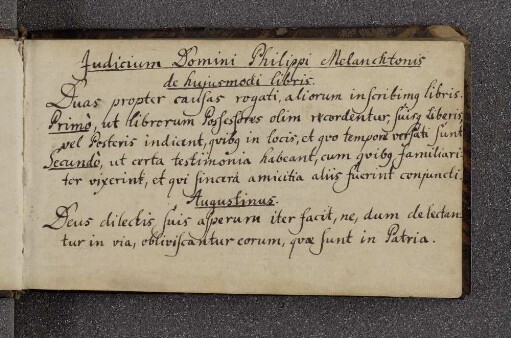 Judicium Domini Philippi Melanchtonis
de hujusmodi libris.
Duas propter causas rogati, aliorum inscribimq libris.
Primò, ut librorum Possessores olim recordentur, suisq Liberis,
vel Posteris indicent, qvibq in locis, et qvo tempore versati sunt
Secundò, ut certa testimonia habeant, cum qvibq familiari-
ter vixerint, et qvi sincerâ amicitia aliis fuerint conjuncti.
Augustinus.
Deus dilectis suis asperum iter facit, ne, dum delectan-
tur in via, obliviscantur eorum, quæ sunt in Patria.